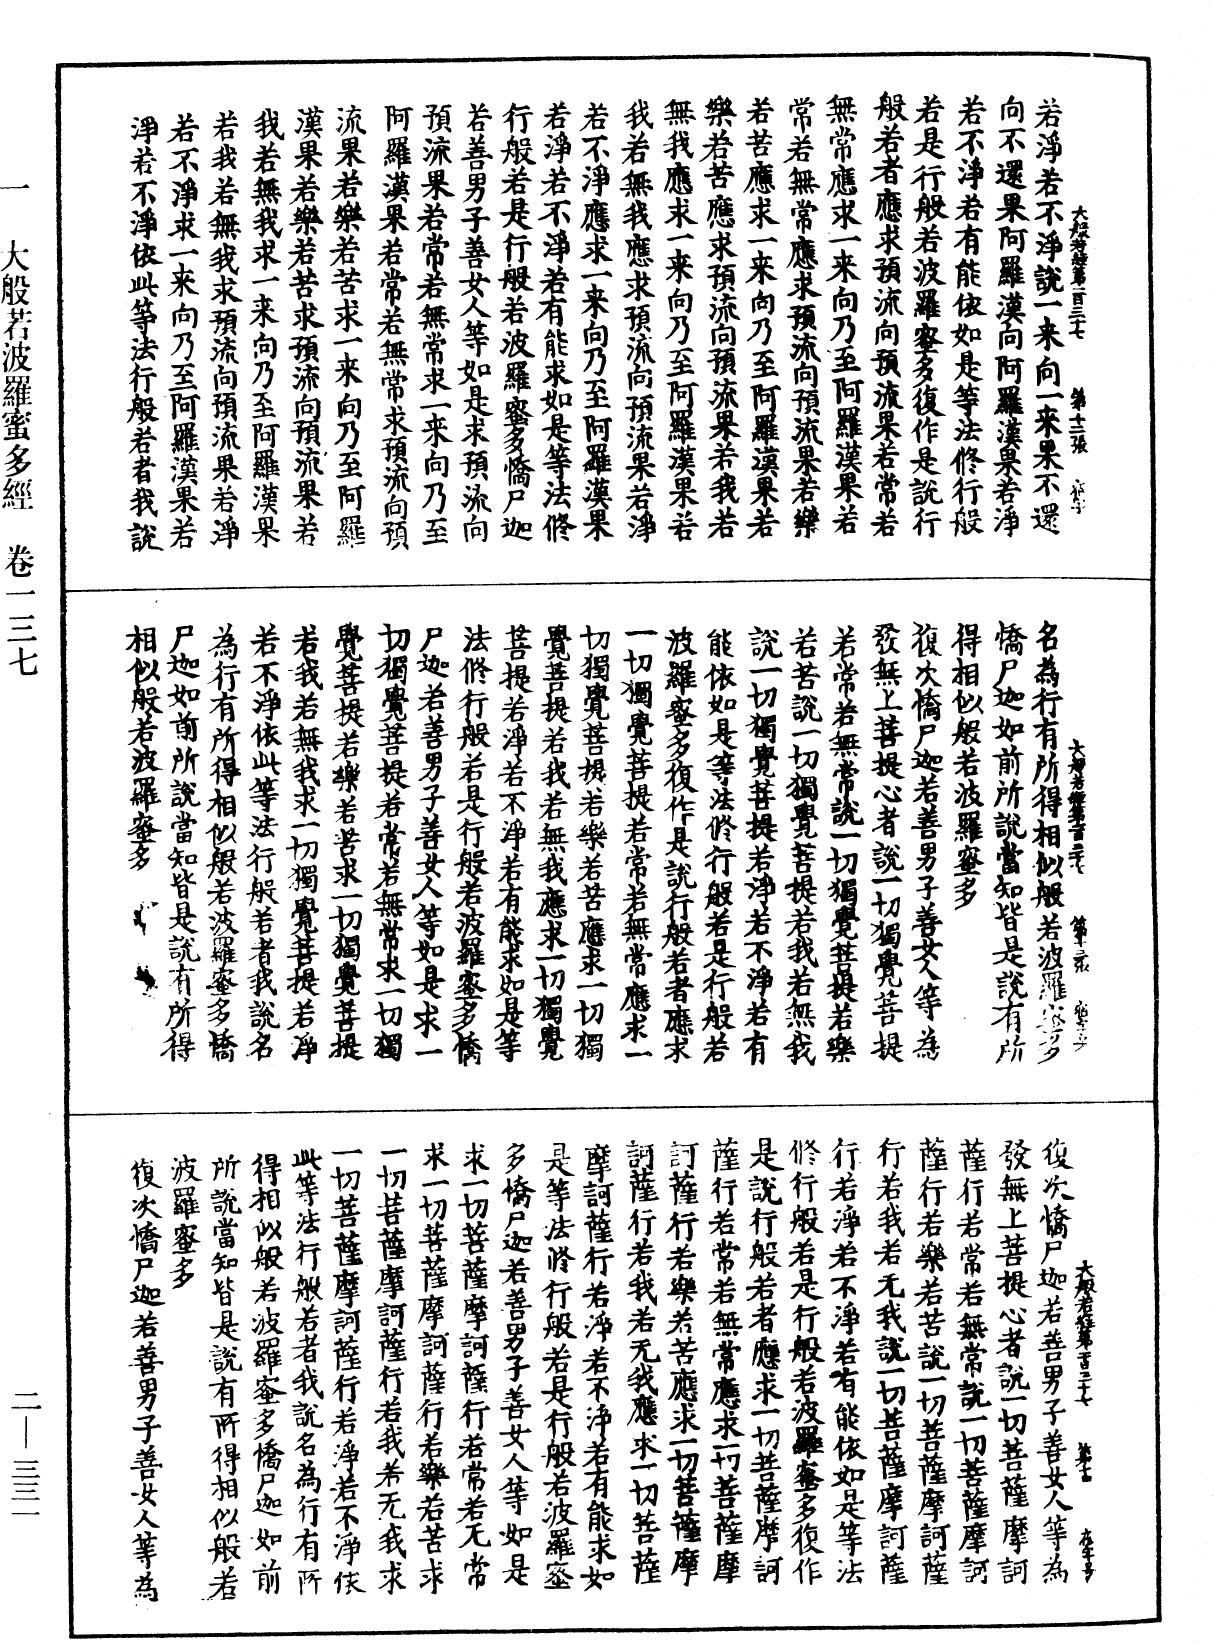 若淨若不淨說一来向一来果不還
向不還果阿羅漢向阿羅漢果若淨
若不淨若有能依如是等法修行般
若是行般若波羅蜜多復作是說行
般若者應求預流向預流果若常若
無常應求一来向乃至阿羅漢果若
常若無常應求預流向預流果若樂
若苦應求一来向乃至阿羅漢果若
樂若苦應求預流向預流果若我若
無我應求一来向乃至阿羅漢果若
我若無我應求預流向預流果若淨
若不淨應求一来向乃至阿羅漢果
若淨若不淨若有能求如是等法修
行般若是行般若波羅蜜多憍尸迦
若善男子善女人等如是求預流向
預流果若常若無常求一来向乃至
阿羅漢果若常若無常求預流向預
流果若樂若苦求一来向乃至阿羅
漢果若樂若苦求預流向預流果若
我若無我求一来向乃至阿羅漢果
若我若無我求預流向預流果若淨
若不淨求一来向乃至阿羅漢果若
淨若不淨依此等法行般若者我說
大般若經第一百三十七 第十二張
名為行有所得相似般若波羅蜜多
憍尸迦如前所說當知皆是說有所
得相似般若波羅蜜多
復次憍尸迦若善男子善女人等為
發無上菩提心者說一切獨覺菩提
若常若無常說一切獨覺菩提若樂
若苦說一切獨覺菩提若我若無我
說一切獨覺菩提若淨若不淨若有
能依如是等法修行般若是行般若
波羅蜜多復作是說行般若者應求
一切獨覺菩提若常若無常應求一
切獨覺菩提若樂若苦應求一切獨
覺菩提若我若無我應求一切獨覺
菩提若淨若不淨若有能求如是等
法修行般若是行般若波羅蜜多憍
尸迦若善男子善女人等如是求一
切獨覺菩提若常若無常求一切獨
覺菩提若樂若苦求一切獨覺菩提
若我若無我求一切獨覺菩提若淨
若不淨依此等法行般若者我說名
為行有所得相似般若波羅蜜多憍
尸迦如前所說當知皆是說有所得
相似般若波羅蜜多
復次憍尸迦若善男子善女人等為
發無上菩提心者說一切菩薩摩訶
薩行若常若無常說一切菩薩摩訶
薩行若樂若苦說一切菩薩摩訶薩
行若我若无我說一切菩薩摩訶薩
行若淨若不淨若有能依如是等法
修行般若是行般若波羅蜜多復作
是說行般若者應求一切菩薩摩訶
薩行若常若無常應求一切菩薩摩
訶薩行若樂若苦應求一切菩薩摩
訶薩行若我若无我應求一切菩薩
摩訶薩行若淨若不淨若有能求如
是等法修行般若是行般若波羅蜜
多憍尸迦若善男子善女人等如是
求一切菩薩摩訶薩行若常若无常
求一切菩薩摩訶薩行若樂若苦求
一切菩薩摩訶薩行若我若无我求
一切菩薩摩訶薩行若淨若不淨依
此等法行般若者我說名為行有所
得相似般若波羅蜜多憍尸迦如前
所說當知皆是說有所得相似般若
波羅蜜多
復次憍尸迦若善男子善女人等為
一 大般若波羅蜜多經 卷一三七
二—三三一